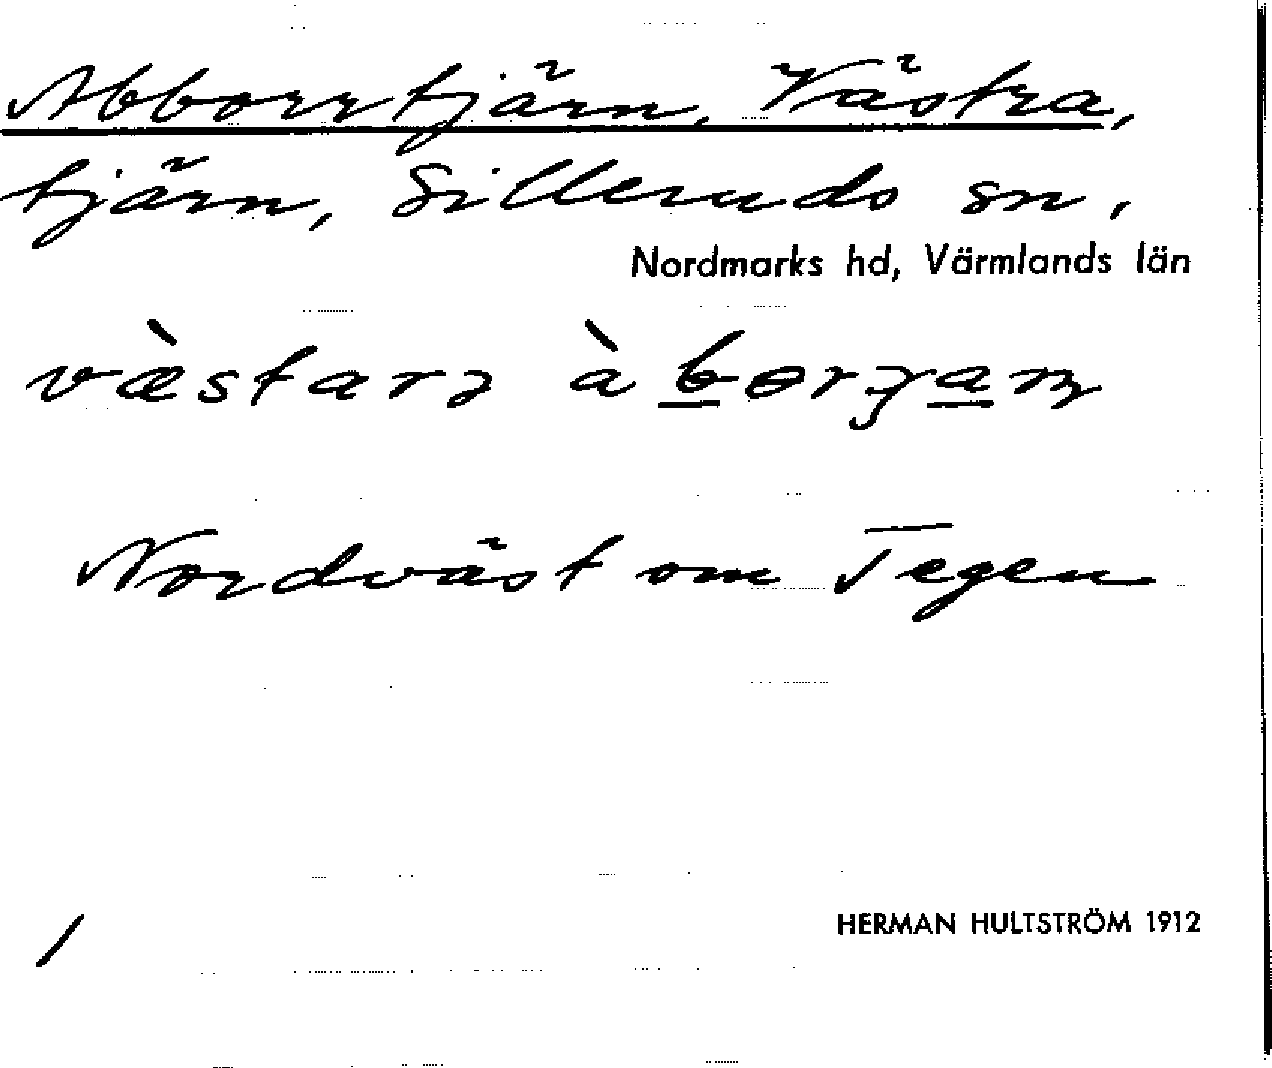 Abborrtjärn, Västra,
tjärn, Silleruds sn,
Nordmarks hd, Värmlands län
Nordväst om Tegen
HERMAN HULTSTRÖM 1912